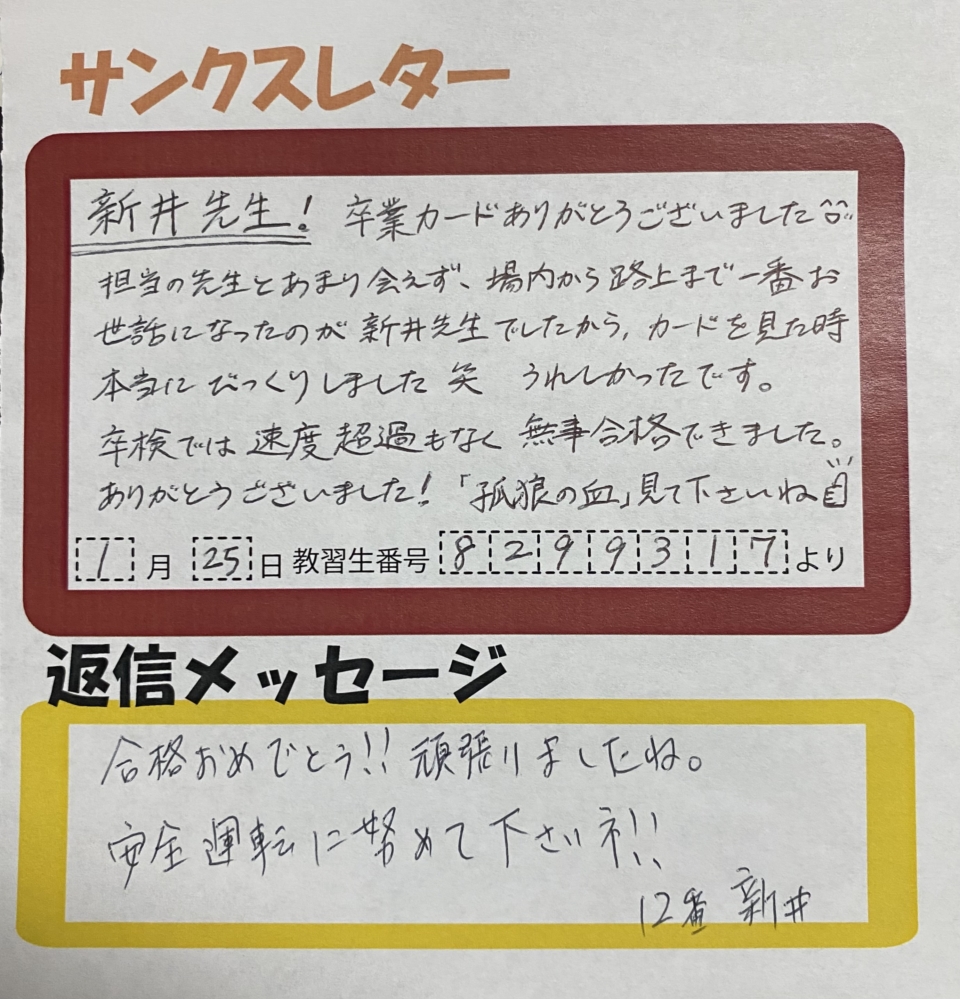 サンクスレター
新井先生! 卒業カードありがとうございました
担当の先生とあまり会えず、場内から路上まで一番お
世話になったのが新井先生でしたから, カードを見た時
本当にびっくりしました 笑 うれしかったです。
卒検では速度超過もなく無事合格できました。
ありがとうございました!「孤狼の血」見て下さいね
1月25日 教習生番号 8299317より
返信メッセージ
合格おめでとう!!頑張りましたね。
安全運転に努めて下さいネ!!
12番 新井